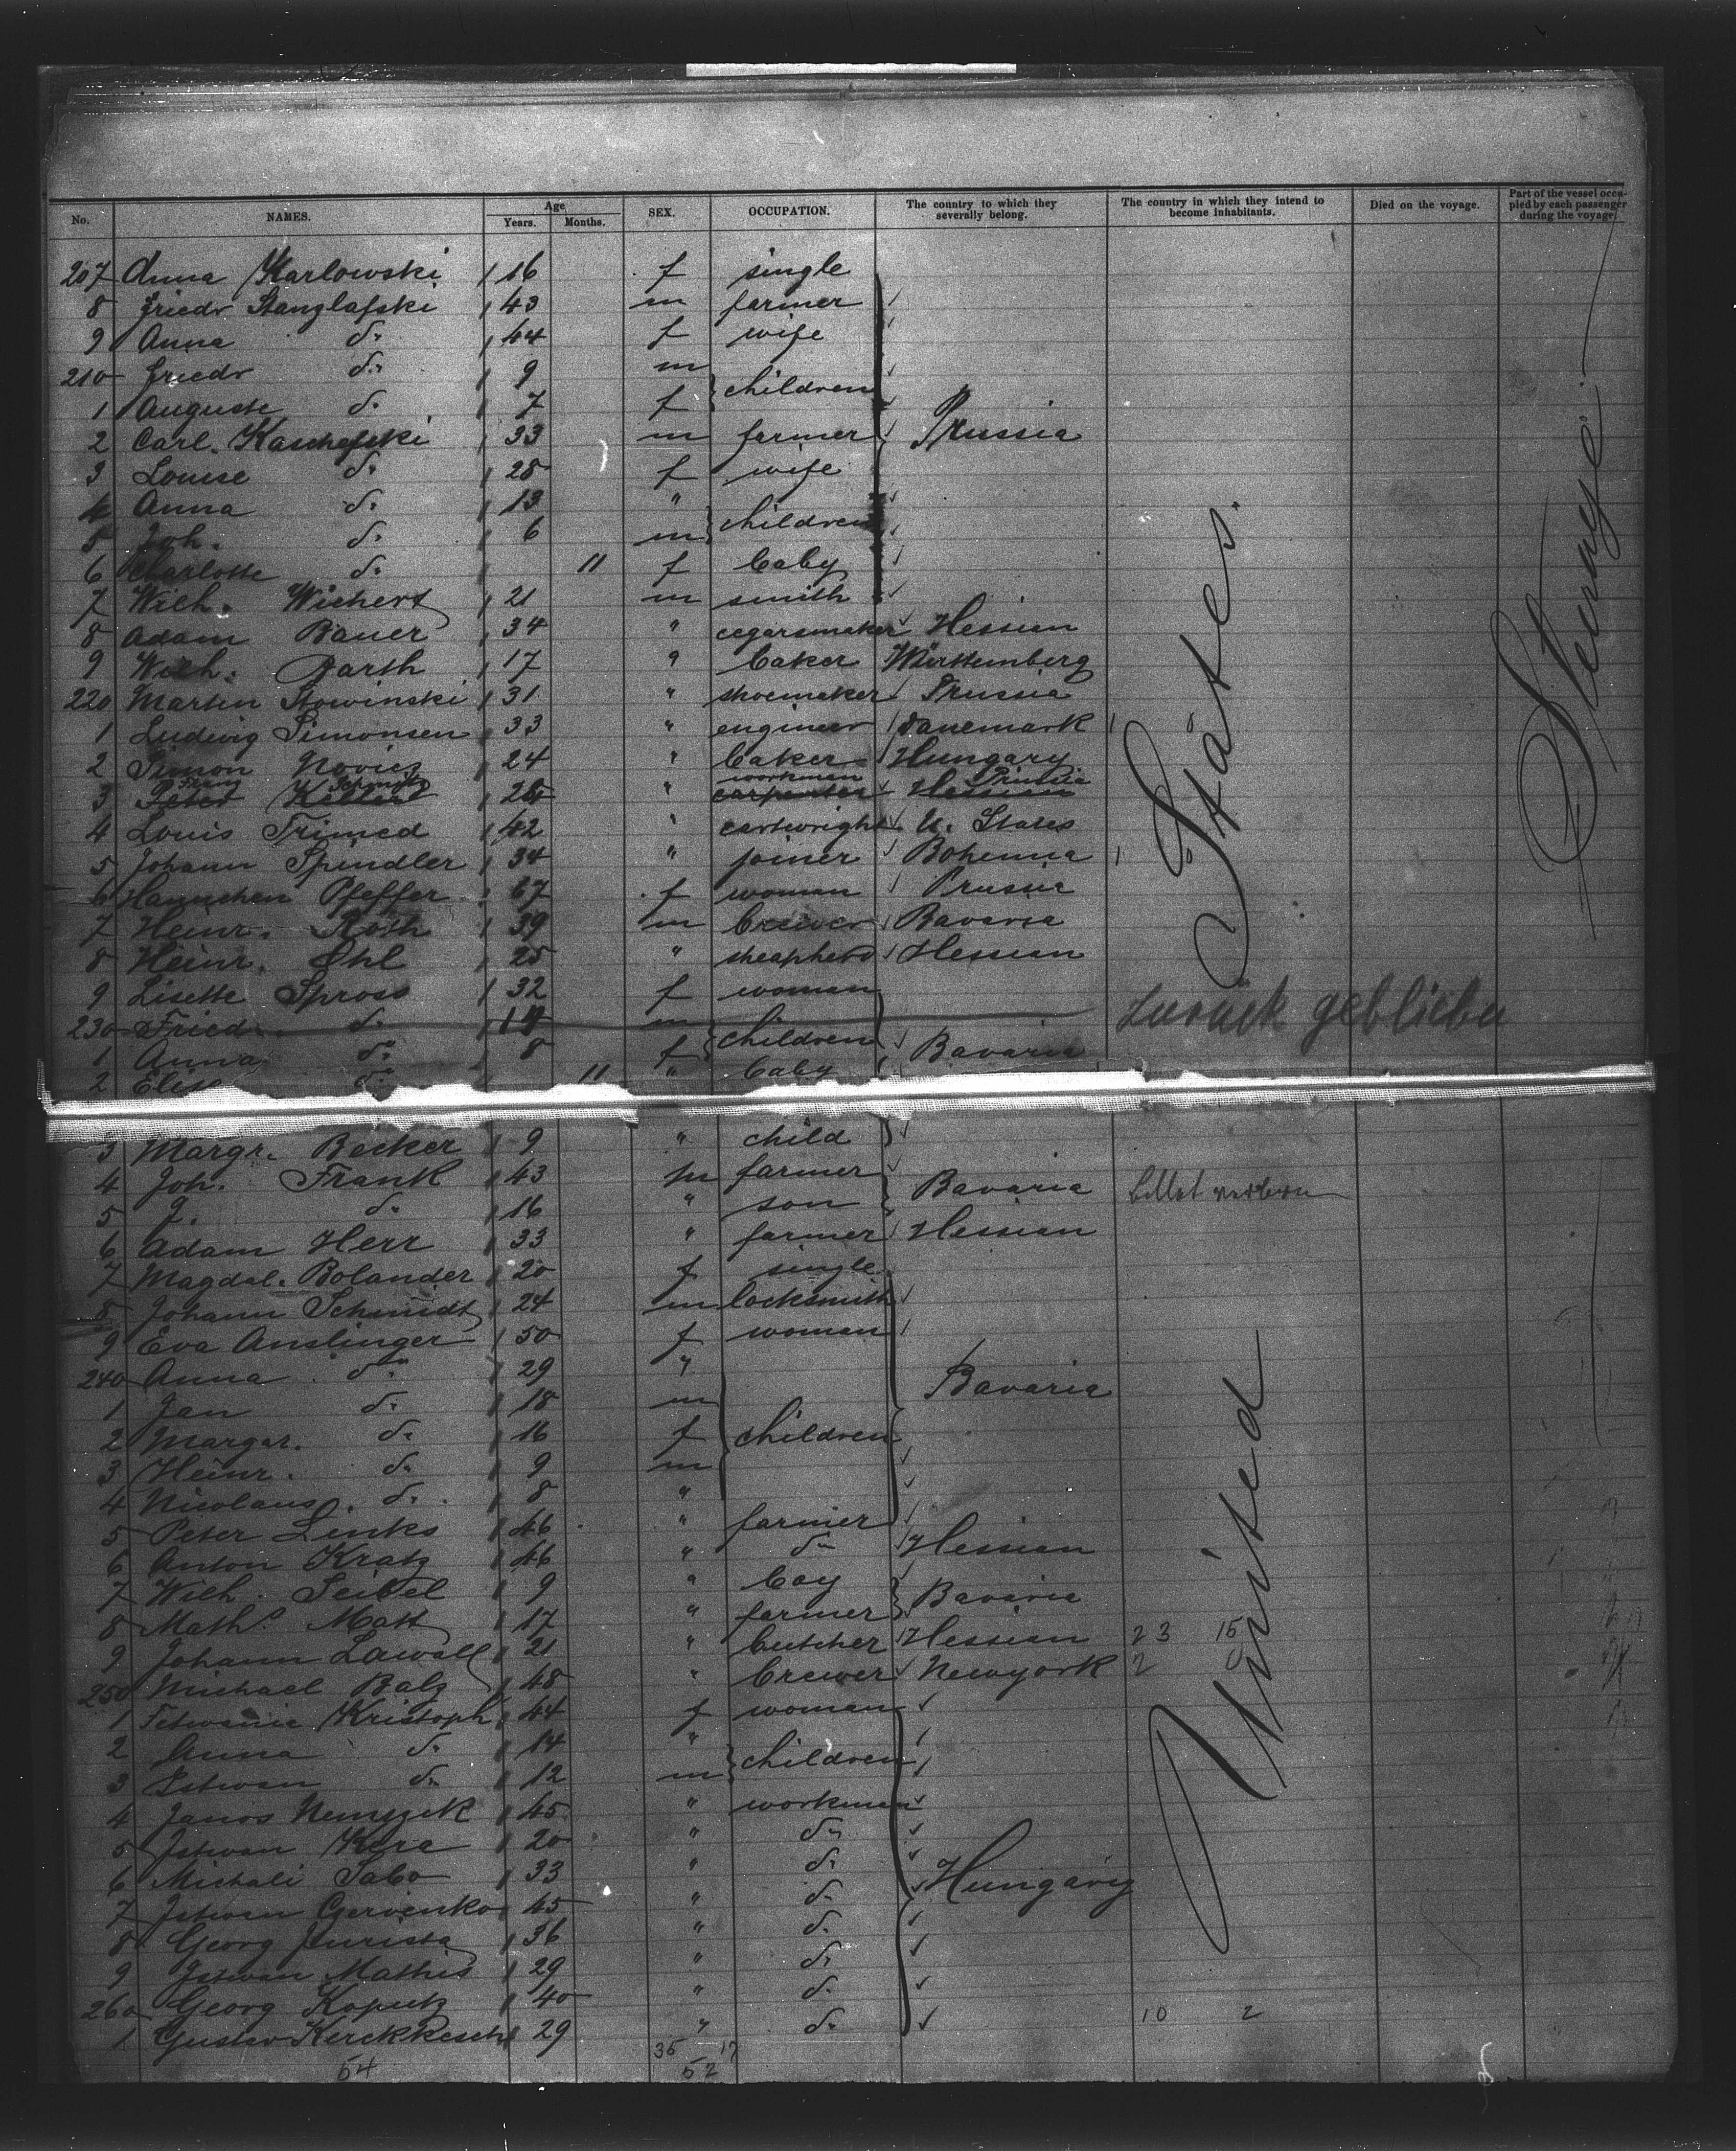 No. NAMES. Age Years. Months. SEX. OCCUPATION. The country to which they severally belong. The country in which they intend to become inhabitants. Died on the voyage. Part of the vessel occupied by each passenger during the voyage.
207 Anna Karlowski 16 f single
8 Friedr Stanglafski 43 m farmer
9 Anna do 44 f wife
210 Friedr do 9 m
1 Auguste do 7 f children
2 Carl. Kaschefski 33 m farmer Prussia
3 Louise do 28 f wife
4 Anna do 13 "
5 Joh. do 6 m children
6 Charlotte do 11 f baby
7 Wilh. Wichert 21 m smith
8 Adam Bauer 34 " cegarsmaker Hessian
9 Wilh. Barth 17 " baker Württemberg
220 Martin Stowinski 31 " shoemaker Prussia
1 Ludwig Simonsen 33 " engineer Danemark
2 Simon Novies 24 " baker Hungary
Franz Schmidt workman Prussia
3 Peter Keller 26 " carpenter Hessian
4 Louis Trimed 42 " cartwright U. States
5 Johann Spindler 34 " joiner Bohemia
6 Hannchen Pfeffer 67 f woman Prussia
7 Heinr. Roth 39 m brewer Bavaria
8 Heinr. Ohl 25 " sheapherd Hessian
9 Lisette Spross 32 f woman
230 Friedr. do m zurück geblieben
1 Anna do 8 f children Bavaria
2 Elise do 11 " baby
3 Margr. Becker 9 " child
4 Joh. Frank 43 m farmer
5 J. do 16 " son Bavaria billet
6 Adam Herr 33 " farmer Hessian
7 Magdal. Bolander 20 f single
8 Johann Schmidt 24 m locksmith
9 Eva Anslinger 50 f woman
240 Anna do 29 "
1 Jan do 18 m Bavaria
2 Margar. do 16 f children
3 Heinr. do 9 m
4 Nicolaus do 8 "
5 Peter Links 46 " farmer
6 Anton Kratz 46 " do Hessian
7 Wilh. Seibel 9 " boy
8 Math. Matt 17 " farmer Bavaria
9 Johann Lawall 21 " butcher Hessian 23 15
250 Michael Balz 48 " brewer Newyork 2 0
1 Kristoph 44 f woman
2 Anna do 14 "
3 Istwan do 12 m children
4 Janos Nemszik 45 " workman
5 Istwan Kera 20 " do
6 Michali Sabo 33 " do
7 Istwan Gervenko 45 " do Hungary
8 Georg Jurista 36 " do
9 Istwan Mathis 29 " do
260 Georg Koputz 40 " do
1 Gustav Kerekkesch 29 " do 10 2
54 36 17
52
United States.
Steerage